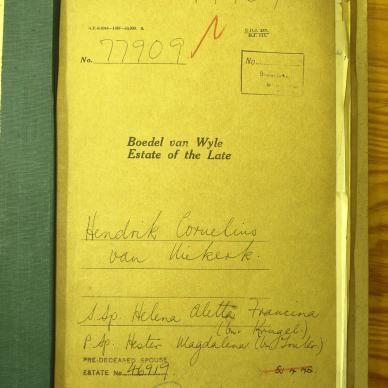 No. 77909
No.
Boedel van Wyle
Estate of the Late
Hendrik Cornelius
van Niekerk.
S. Sp. Helena Aletta Francina
(bn. Krugel)
P. Sp. Hester Magdalena (bn.
PRE-DECEASED SPOUSE
ESTATE No. 46919